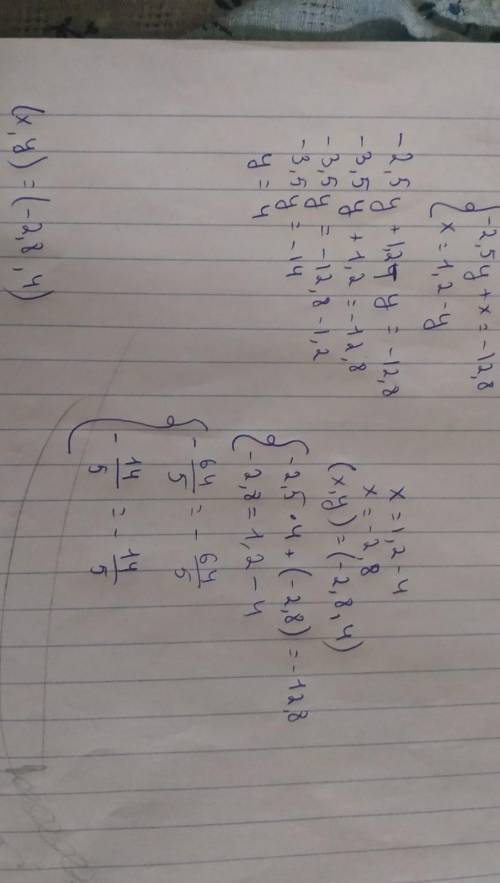 {-2,5y + x = -12,8
{x = 1,2 - y
-2,5y + 1,2 - y = -12,8
-3,5y + 1,2 = -12,8
-3,5y = -12,8 - 1,2
-3,5y = -14
y = 4
x = 1,2 - 4
x = -2,8
(x,y) = (-2,8 , 4)
{-2,5 · 4 + (-2,8) = -12,8
{-2,8 = 1,2 - 4
{-64/5 = -64/5
{-14/5 = -14/5
(x, y) = (-2,8 , 4)